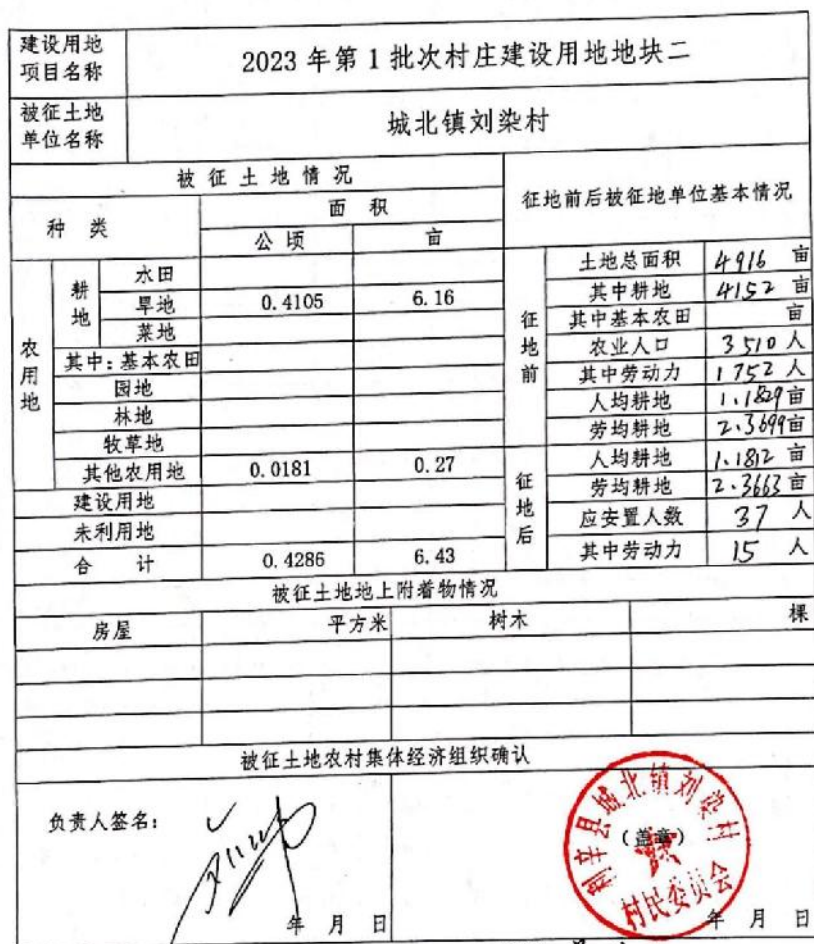 建设用地
项目名称
2023 年第 1 批次村庄建设用地地块二
被征土地
单位名称
城北镇刘染村
被征土地情况
征地前后被征地单位基本情况
种 类
面 积
公顷 亩
农用地
耕地
水田
旱地 0.4105 6.16
菜地
其中：基本农田
园地
林地
牧草地
其他农用地 0.0181 0.27
建设用地
未利用地
合 计 0.4286 6.43
征地前
土地总面积 4916 亩
其中耕地 4152 亩
其中基本农田 亩
农业人口 3510 人
其中劳动力 1752 人
人均耕地 1.1829 亩
劳均耕地 2.3699 亩
征地后
人均耕地 1.1812 亩
劳均耕地 2.3663 亩
应安置人数 37 人
其中劳动力 15 人
被征土地地上附着物情况
房屋 平方米 树木 棵
被征土地农村集体经济组织确认
负责人签名：
年 月 日
县城北镇刘染村
村民委员会
（盖章）
年 月 日